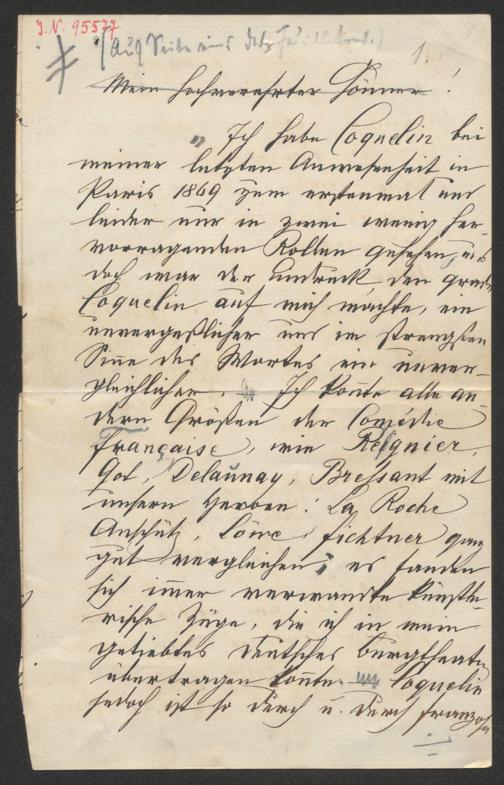 J. N. 95577
(Auf Seite eins des Feuilletons.)
1.
Mein hochverehrter Gönner!
„Ich habe Coquelin bei
meiner letzten Anwesenheit in
Paris 1869 zum erstenmal und
leider nur in zwei wenig her-
vorragenden Rollen gesehen, und
doch war der Eindruck, den grade
Coquelin auf mich machte, ein
unvergeßlicher und im strengsten
Sinne des Wortes ein unver-
gleichlicher. Ich konnte alle an-
dern Größen der Comédie
Française, wie Regnier,
Got, Delaunay, Bressant mit
unsern Heroen: La Roche
Anschütz, Löwe, Fichtner ganz
gut vergleichen; es fanden
sich immer verwandte künstle-
rische Züge, die ich in mein
geliebtes deutsches Burgtheater
übertragen konnte. Coquelin
jedoch ist so durch u. durch französi